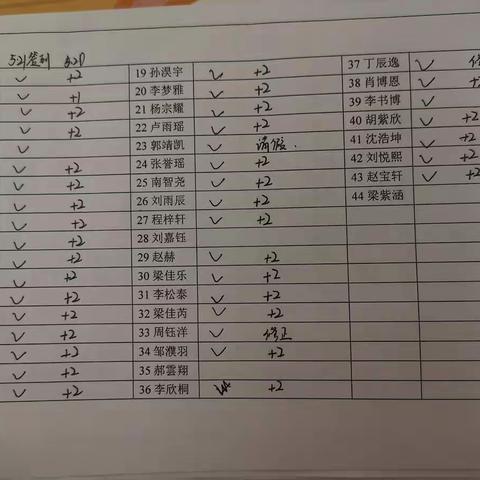 521签到 520
✓ +2 19 孙淏宇 ✓ +2 37 丁辰逸 ✓
✓ +1 20 李梦雅 ✓ +2 38 肖博恩 ✓ +2
✓ +2 21 杨宗耀 ✓ +2 39 李书博 ✓
✓ +2 22 卢雨瑶 ✓ +2 40 胡紫欣 ✓ +2
✓ 23 郭靖凯 ✓ 请假. 41 沈浩坤 ✓ +2
✓ +2 24 张誉瑶 ✓ +2 42 刘悦熙 ✓ +2
✓ +2 25 南智尧 ✓ +2 43 赵宝轩 ✓ +2
✓ +2 26 刘雨辰 ✓ +2 44 梁紫涵
✓ +2 27 程梓轩 ✓ +2
✓ +2 28 刘嘉钰
✓ +2 29 赵赫 ✓ +2
✓ +2 30 梁佳乐 ✓ +2
✓ +2 31 李松泰 ✓ +2
✓ +2 32 梁佳芮 ✓ +2
✓ +2 33 周钰洋 ✓ 修正
✓ +2 34 邹濮羽 ✓ +2
✓ +2 35 郝雲翔
✓ +2 36 李欣桐 +2